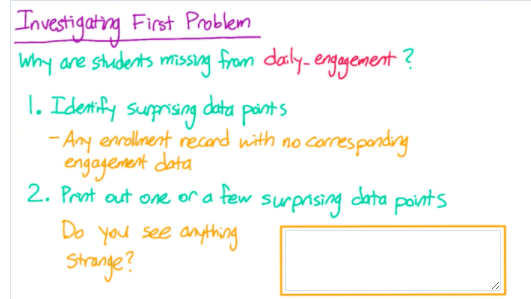 Investigating First Problem
Why are students missing from daily_engagement?
1. Identify surprising data points
- Any enrollment record with no corresponding
engagement data
2. Print out one or a few surprising data points
Do you see anything
strange?